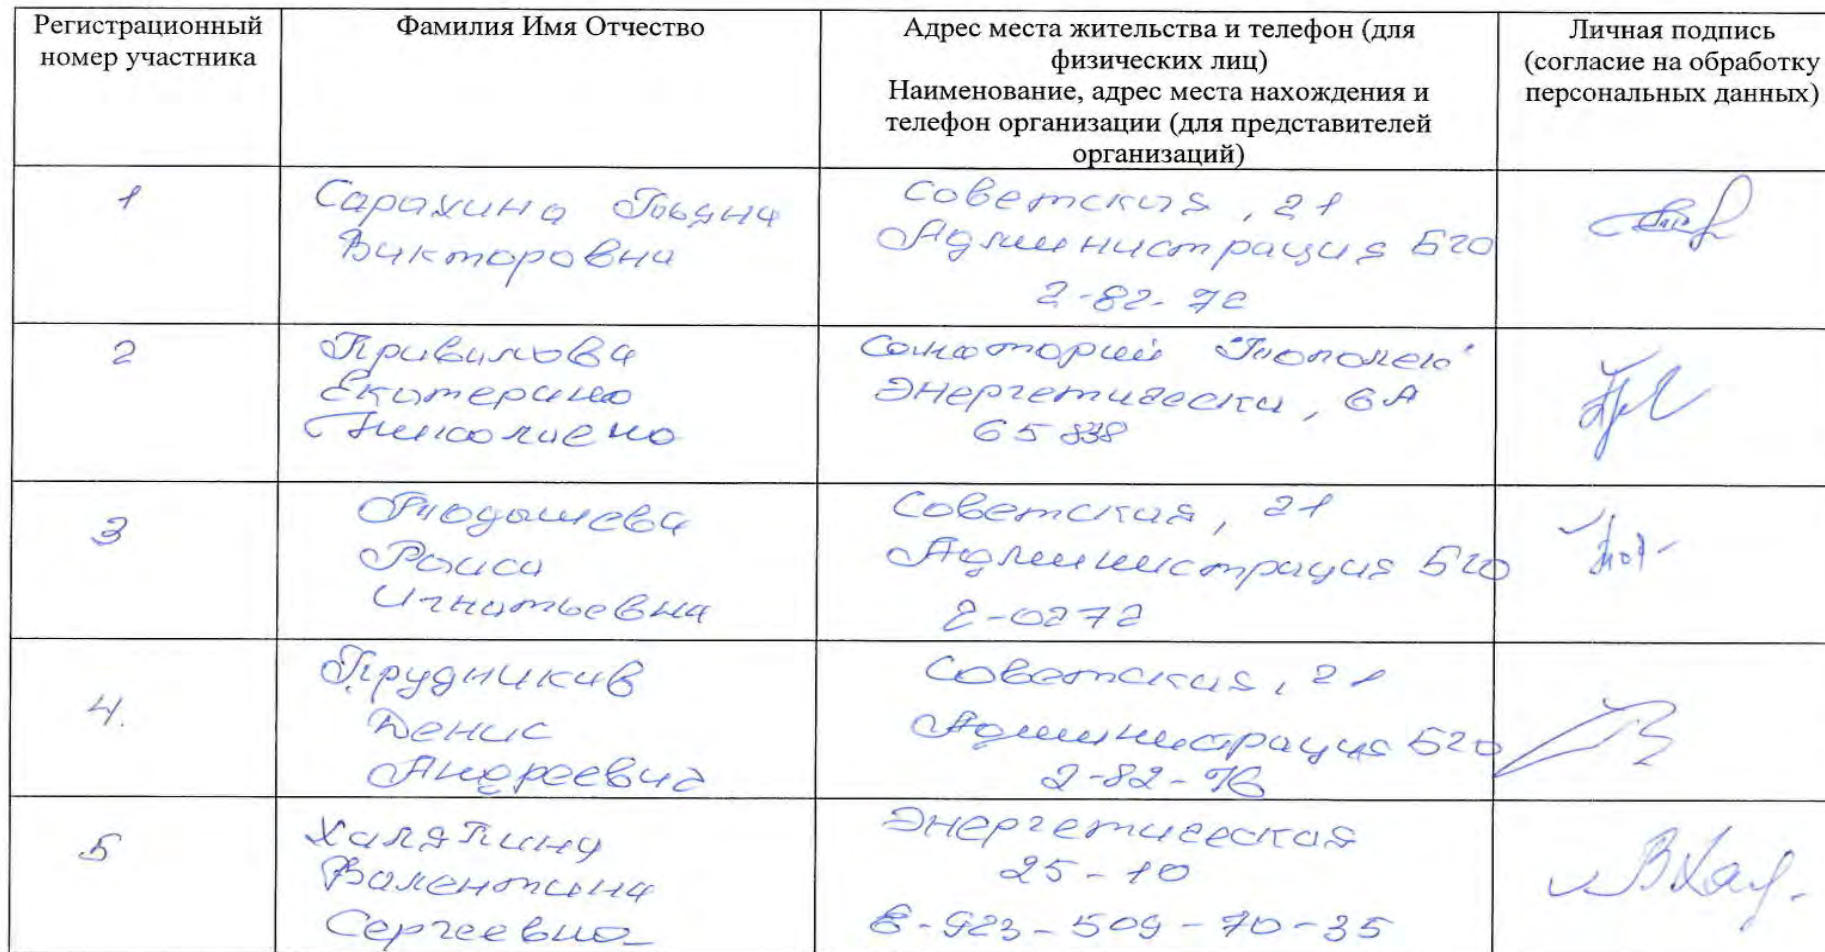 Регистрационный
номер участника
Фамилия Имя Отчество
Адрес места жительства и телефон (для
физических лиц)
Наименование, адрес места нахождения и
телефон организации (для представителей
организаций)
Личная подпись
(согласие на обработку
персональных данных)
1
Викторовна
Советская, 21
Администрация БГО
2-82-72
2
Екатерина
Николаевна
Санаторий "Тополек"
Энергетически, 6А
65838
3
Тюдишева
Раиса
Игнатьевна
Советская, 21
Администрация БГО
2-0272
4.
Денис
Андреевич
Советская, 21
Администрация БГО
2-82-76
5
Валентина
Сергеевна
Энергетическая
25-10
8-923-509-70-35